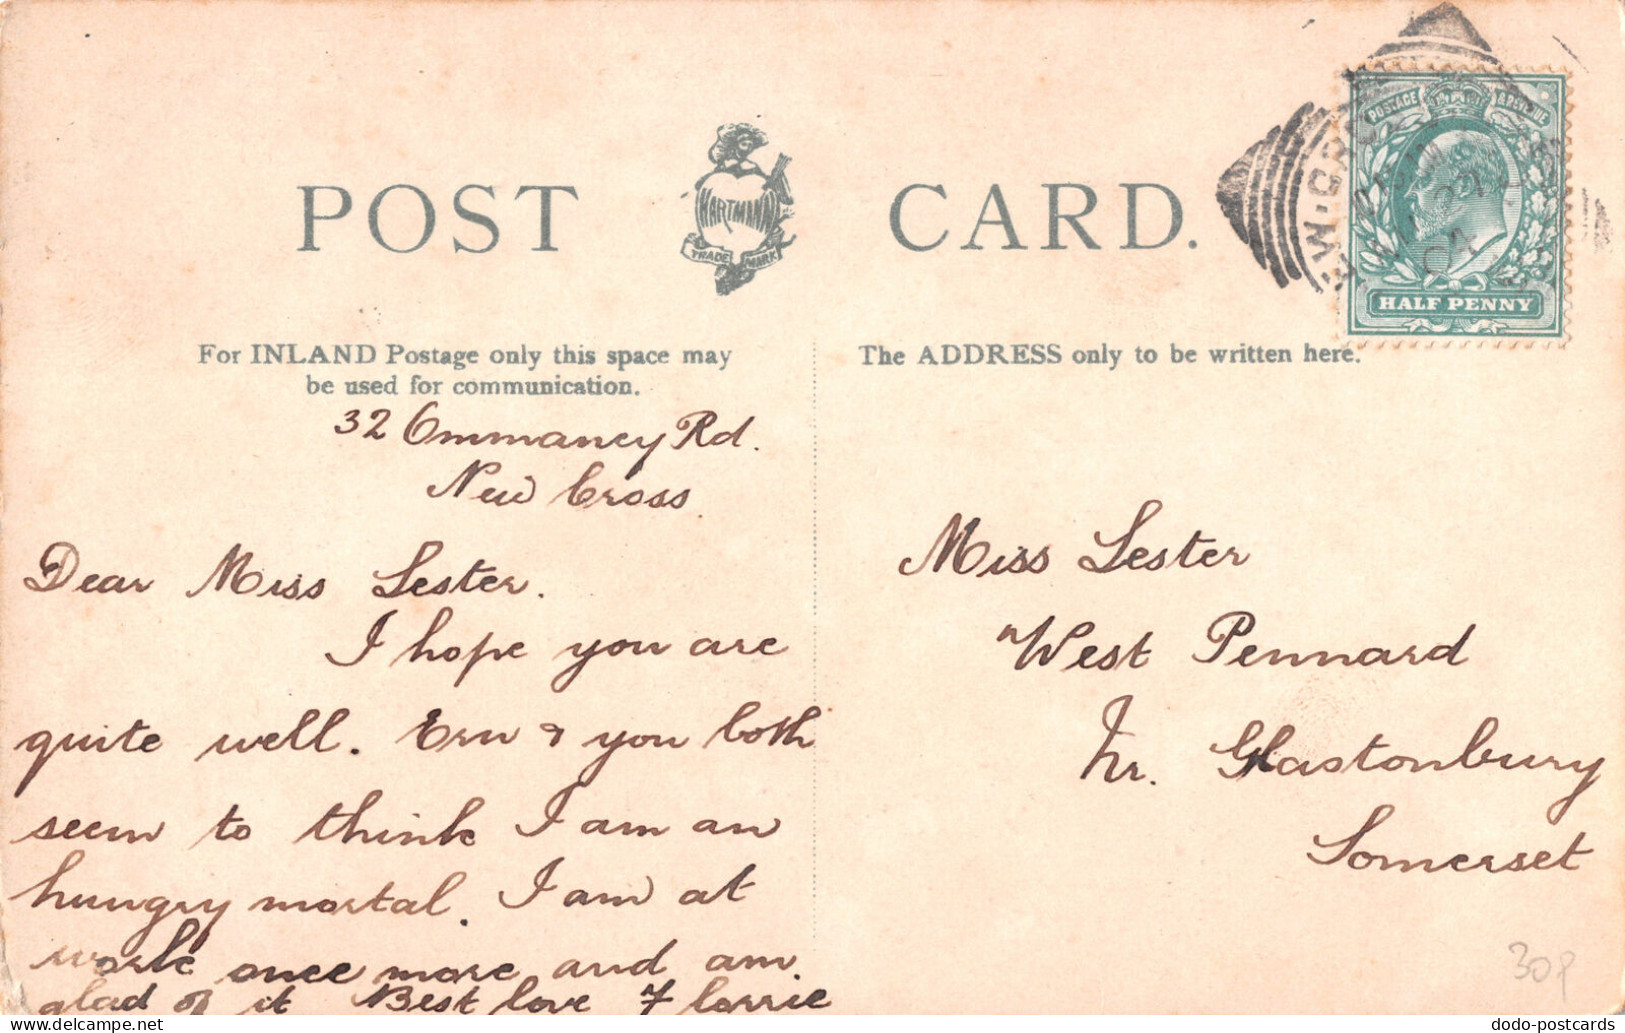 POST CARD.
HARTMANN
TRADE MARK
POSTAGE & REVENUE
HALF PENNY
For INLAND Postage only this space may
be used for communication.
The ADDRESS only to be written here.
32 Ommaney Rd.
New Cross.
Dear Miss Lester.
I hope you are
quite well. Ern & you both
seem to think I am an
hungry mortal. I am at
work once more and am
glad of it Best love Florrie
Miss Lester
West Pennard
Nr. Glastonbury
Somerset
30p
dodo-postcards